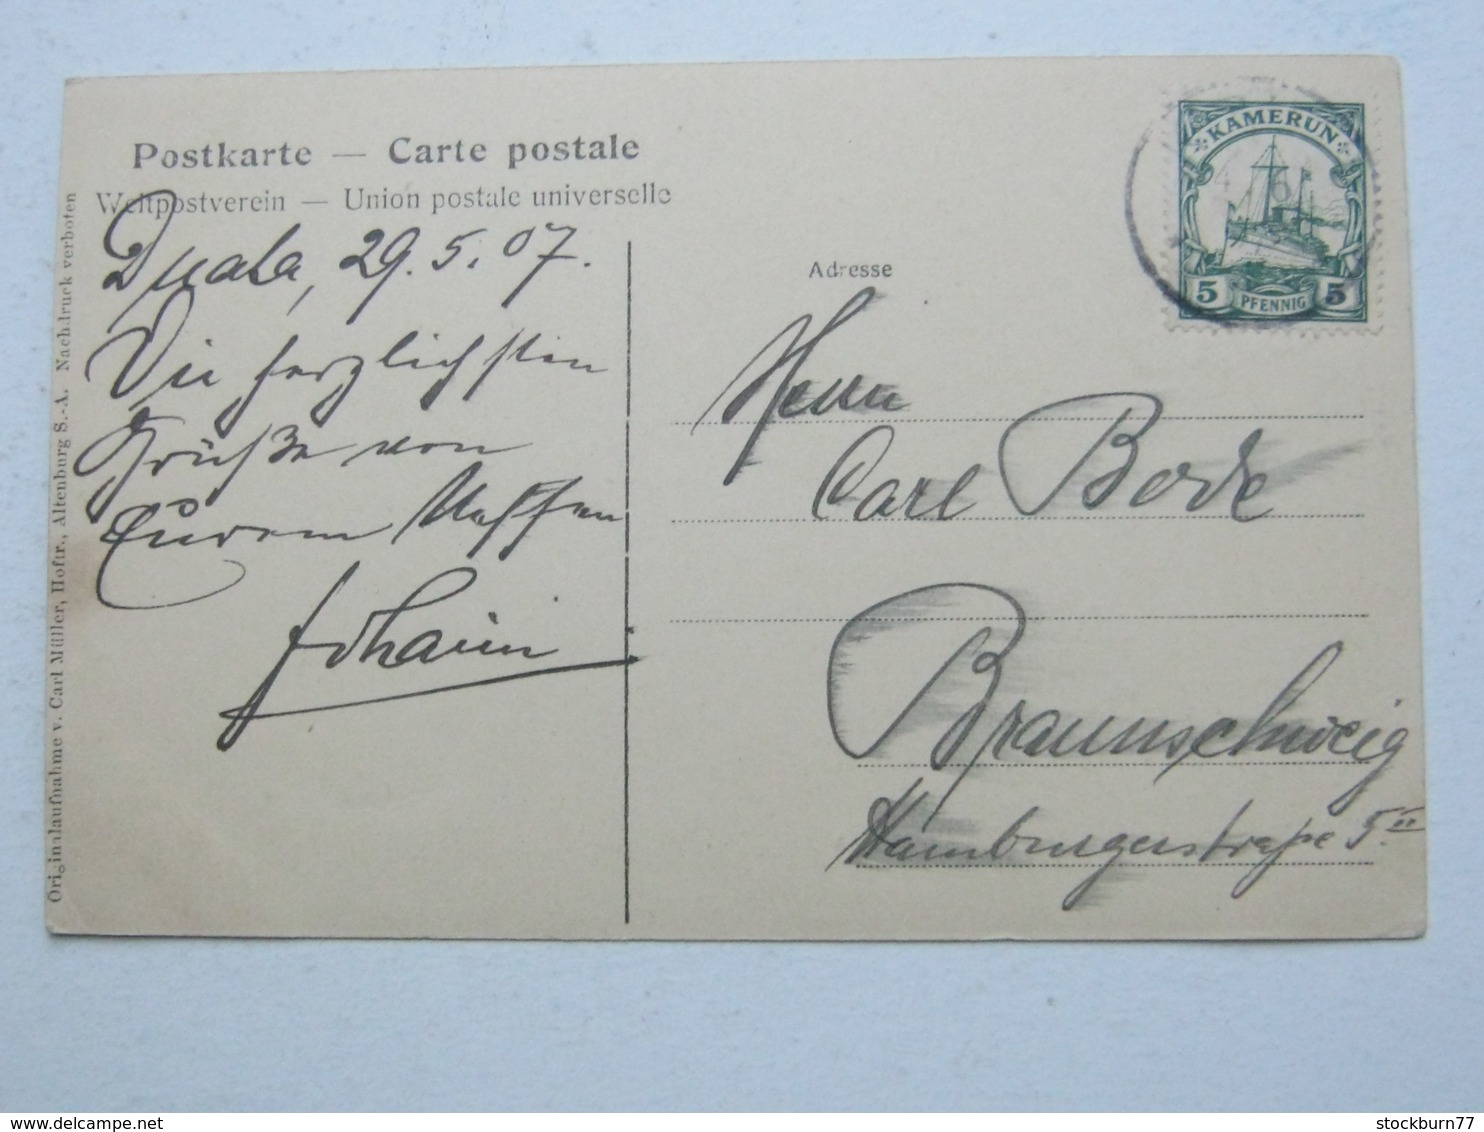 Postkarte — Carte postale
Weltpostverein — Union postale universelle
Duala, 29. 5. 07.
Die herzlichsten
Grüße von
Eurem Neffen
Adresse
Herrn
Carl Bode
Braunschweig
Hamburgerstraße 5 II
KAMERUN
5 PFENNIG 5
Originalaufnahme v. Carl Müller, Hoftr., Altenburg S.-A. Nachdruck verboten
stockburn77